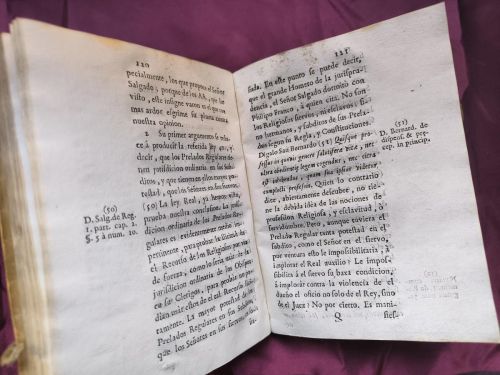 120
pecialmente, los que propuso el Señor
Salgado; porque de los AA. que hè
visto, este insigne varon es el que con
mas ardor esgrime su pluma contra
nuestra opinion.
2 Su primer argumento se
à producir la referida ley
decir, que los Prelados Regulares
jurisdicion ordinaria en los
ditos, y que
testad, que los Señores en sus
(50) La ley Real, yà hemos
prueba nuestra conclusion. La
dicion ordinaria de los Prelados
gulares es evidentemente
pertinente, para probar
el Recurso de los Religiosos por
de fuerza, como lo seria
jurisdicion ordinaria de los Obispos
en sus Clerigos, para
dicho
tamente. La mayor potestad de los
Prelados Regulares en sus
que los Señores en sus siervos,
(50)
D. Salg. de Reg.
1. part. cap. 2.
§. 5. à num. 10.
121
sada. En este punto se puede decir,
que el grande Homero de la jurispru-
dencia, el Señor Salgado dormitò con
Philipo Franco, à quien cita. No son
los Religiosos siervos, ni esclavos; si-
no hermanos, y subditos de sus Prela-
dos segun su Regla, y Constituciones.
Digalo San Bernardo (51) Quisque pro-
fessus in quovis genere salutifera vita, nec
ultra obedientia legem cogendus est, nec
citra inhibendus, quam sua ipsius videtur
complecti professio. Quien lo contrario
dice, abiertamente descubre, no tie-
ne la debida idèa de las nociones de
profession Religiosa, y esclavitud, ò
servidumbre. Pero, aunque tuviera el
Prelado Regular tanta potestad en el
subdito, como el Señor en el siervo;
por ventura esto le impossibilitaria, à
à implorar el Real auxilio? Le impos-
sibilita al siervo su baxa condicion,
à implorar contra la violencia de el
dueño el oficio no solo de el Rey, sino
de el Juez? No por cierto. Es mani-
Q
fies-
(51)
D. Bernard. de
dispens. & præ-
cep. in princip.